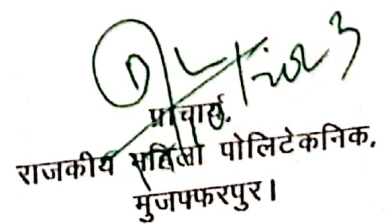 प्राचार्य,
राजकीय महिला पोलिटेकनिक,
मुजफ्फरपुर।